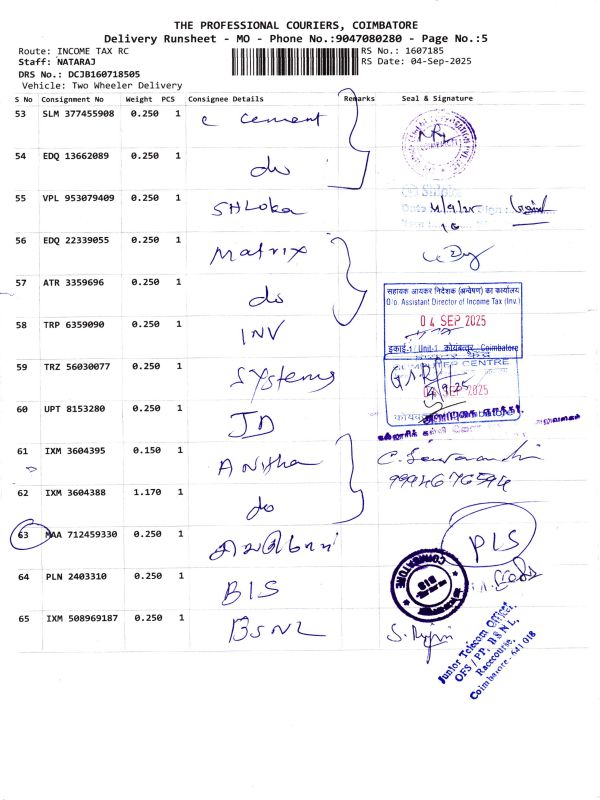 THE PROFESSIONAL COURIERS, COIMBATORE
Delivery Runsheet - MO - Phone No.:9047080280 - Page No.:5
Route: INCOME TAX RC RS No.: 1607185
Staff: NATARAJ RS Date: 04-Sep-2025
DRS No.: DCJB160718505
Vehicle: Two Wheeler Delivery
S No Consignment No Weight PCS Consignee Details Remarks Seal & Signature
53 SLM 377455908 0.250 1 cement
54 EDQ 13662089 0.250 1 do
55 VPL 953079409 0.250 1 SHLoka
56 EDQ 22339055 0.250 1 Matrix
57 ATR 3359696 0.250 1 do
सहायक आयकर निदेशक (अन्वेषण) का कार्यालय
O/o. Assistant Director of Income Tax (Inv.)
58 TRP 6359090 0.250 1 INV 04 SEP 2025
इकाई-1/ Unit-1 कोयंबत्तूर, Coimbatore
59 TRZ 56030077 0.250 1 Systems
SEP 2025
60 UPT 8153280 0.250 1 JD
61 IXM 3604395 0.150 1 Anitha
9994676594
62 IXM 3604388 1.170 1 do
63 MAA 712459330 0.250 1 PLS
64 PLN 2403310 0.250 1 BIS
COIMBATORE
BIS
65 IXM 508969187 0.250 1 BSNL
Junior Telecom Officer,
OFS / PP, B S N L,
Racecourse,
Coimbatore - 641 018